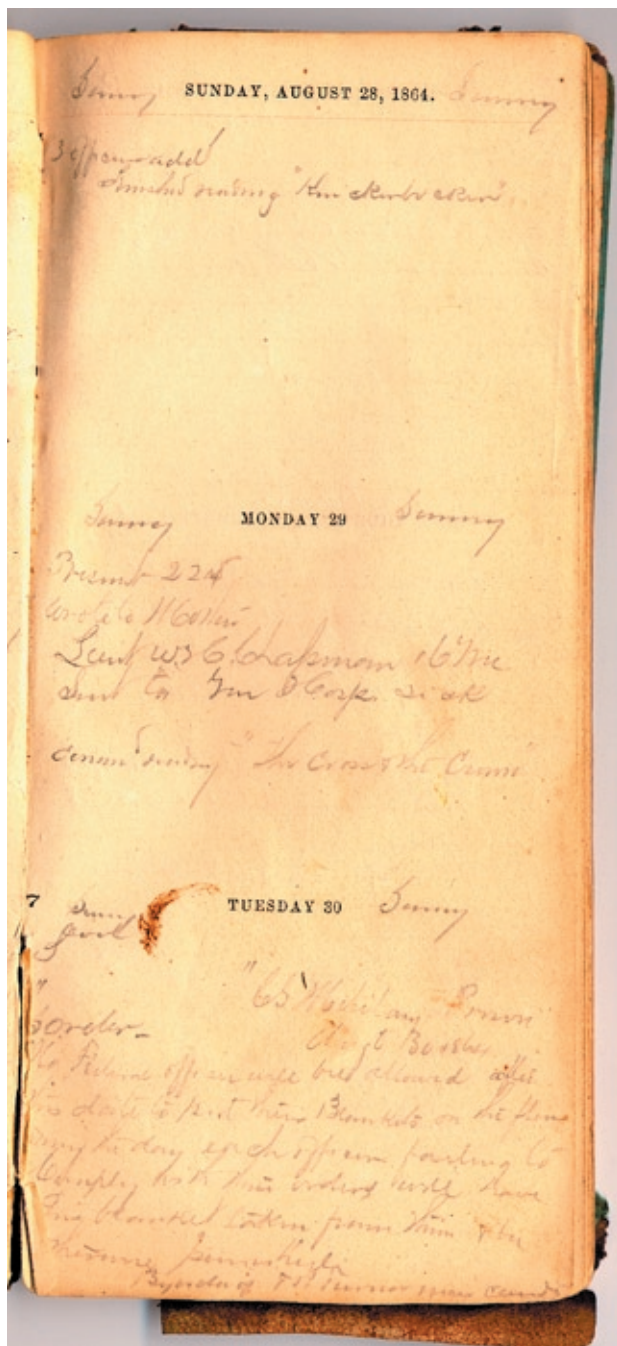 Sunny SUNDAY, AUGUST 28, 1864. Sunny
3 officers add
finished reading "Knickerbocker"
Sunny MONDAY 29 Sunny
Present 224
wrote to
Lieut W. C. Chapman 16 Me
Sent to Gen Sick
reading "The Cross & the Crown"
Sunny TUESDAY 30 Sunny
Cool
"CS Military Prison
Order - Augt
No Federal officer will be allowed after
this date to put their Blankets on the floor
during the day each officer failing to
Comply with this order will have
his blanket taken from him & be
By order of Turner